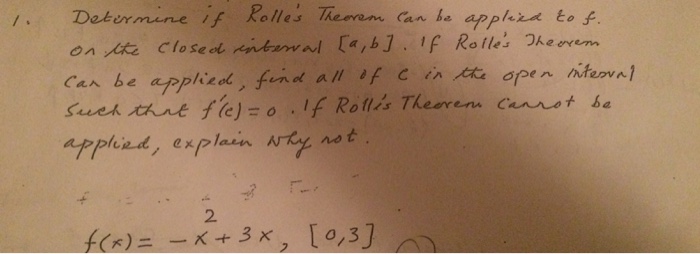 1. Determine if Rolle's Theorem can be applied to f.
on the closed interval [a,b]. If Rolle's Theorem
can be applied, find all of c in the open interval
such that f'(c) = 0. If Rolle's Theorem cannot be
applied, explain why not.
f(x) = -x² + 3x, [0,3]